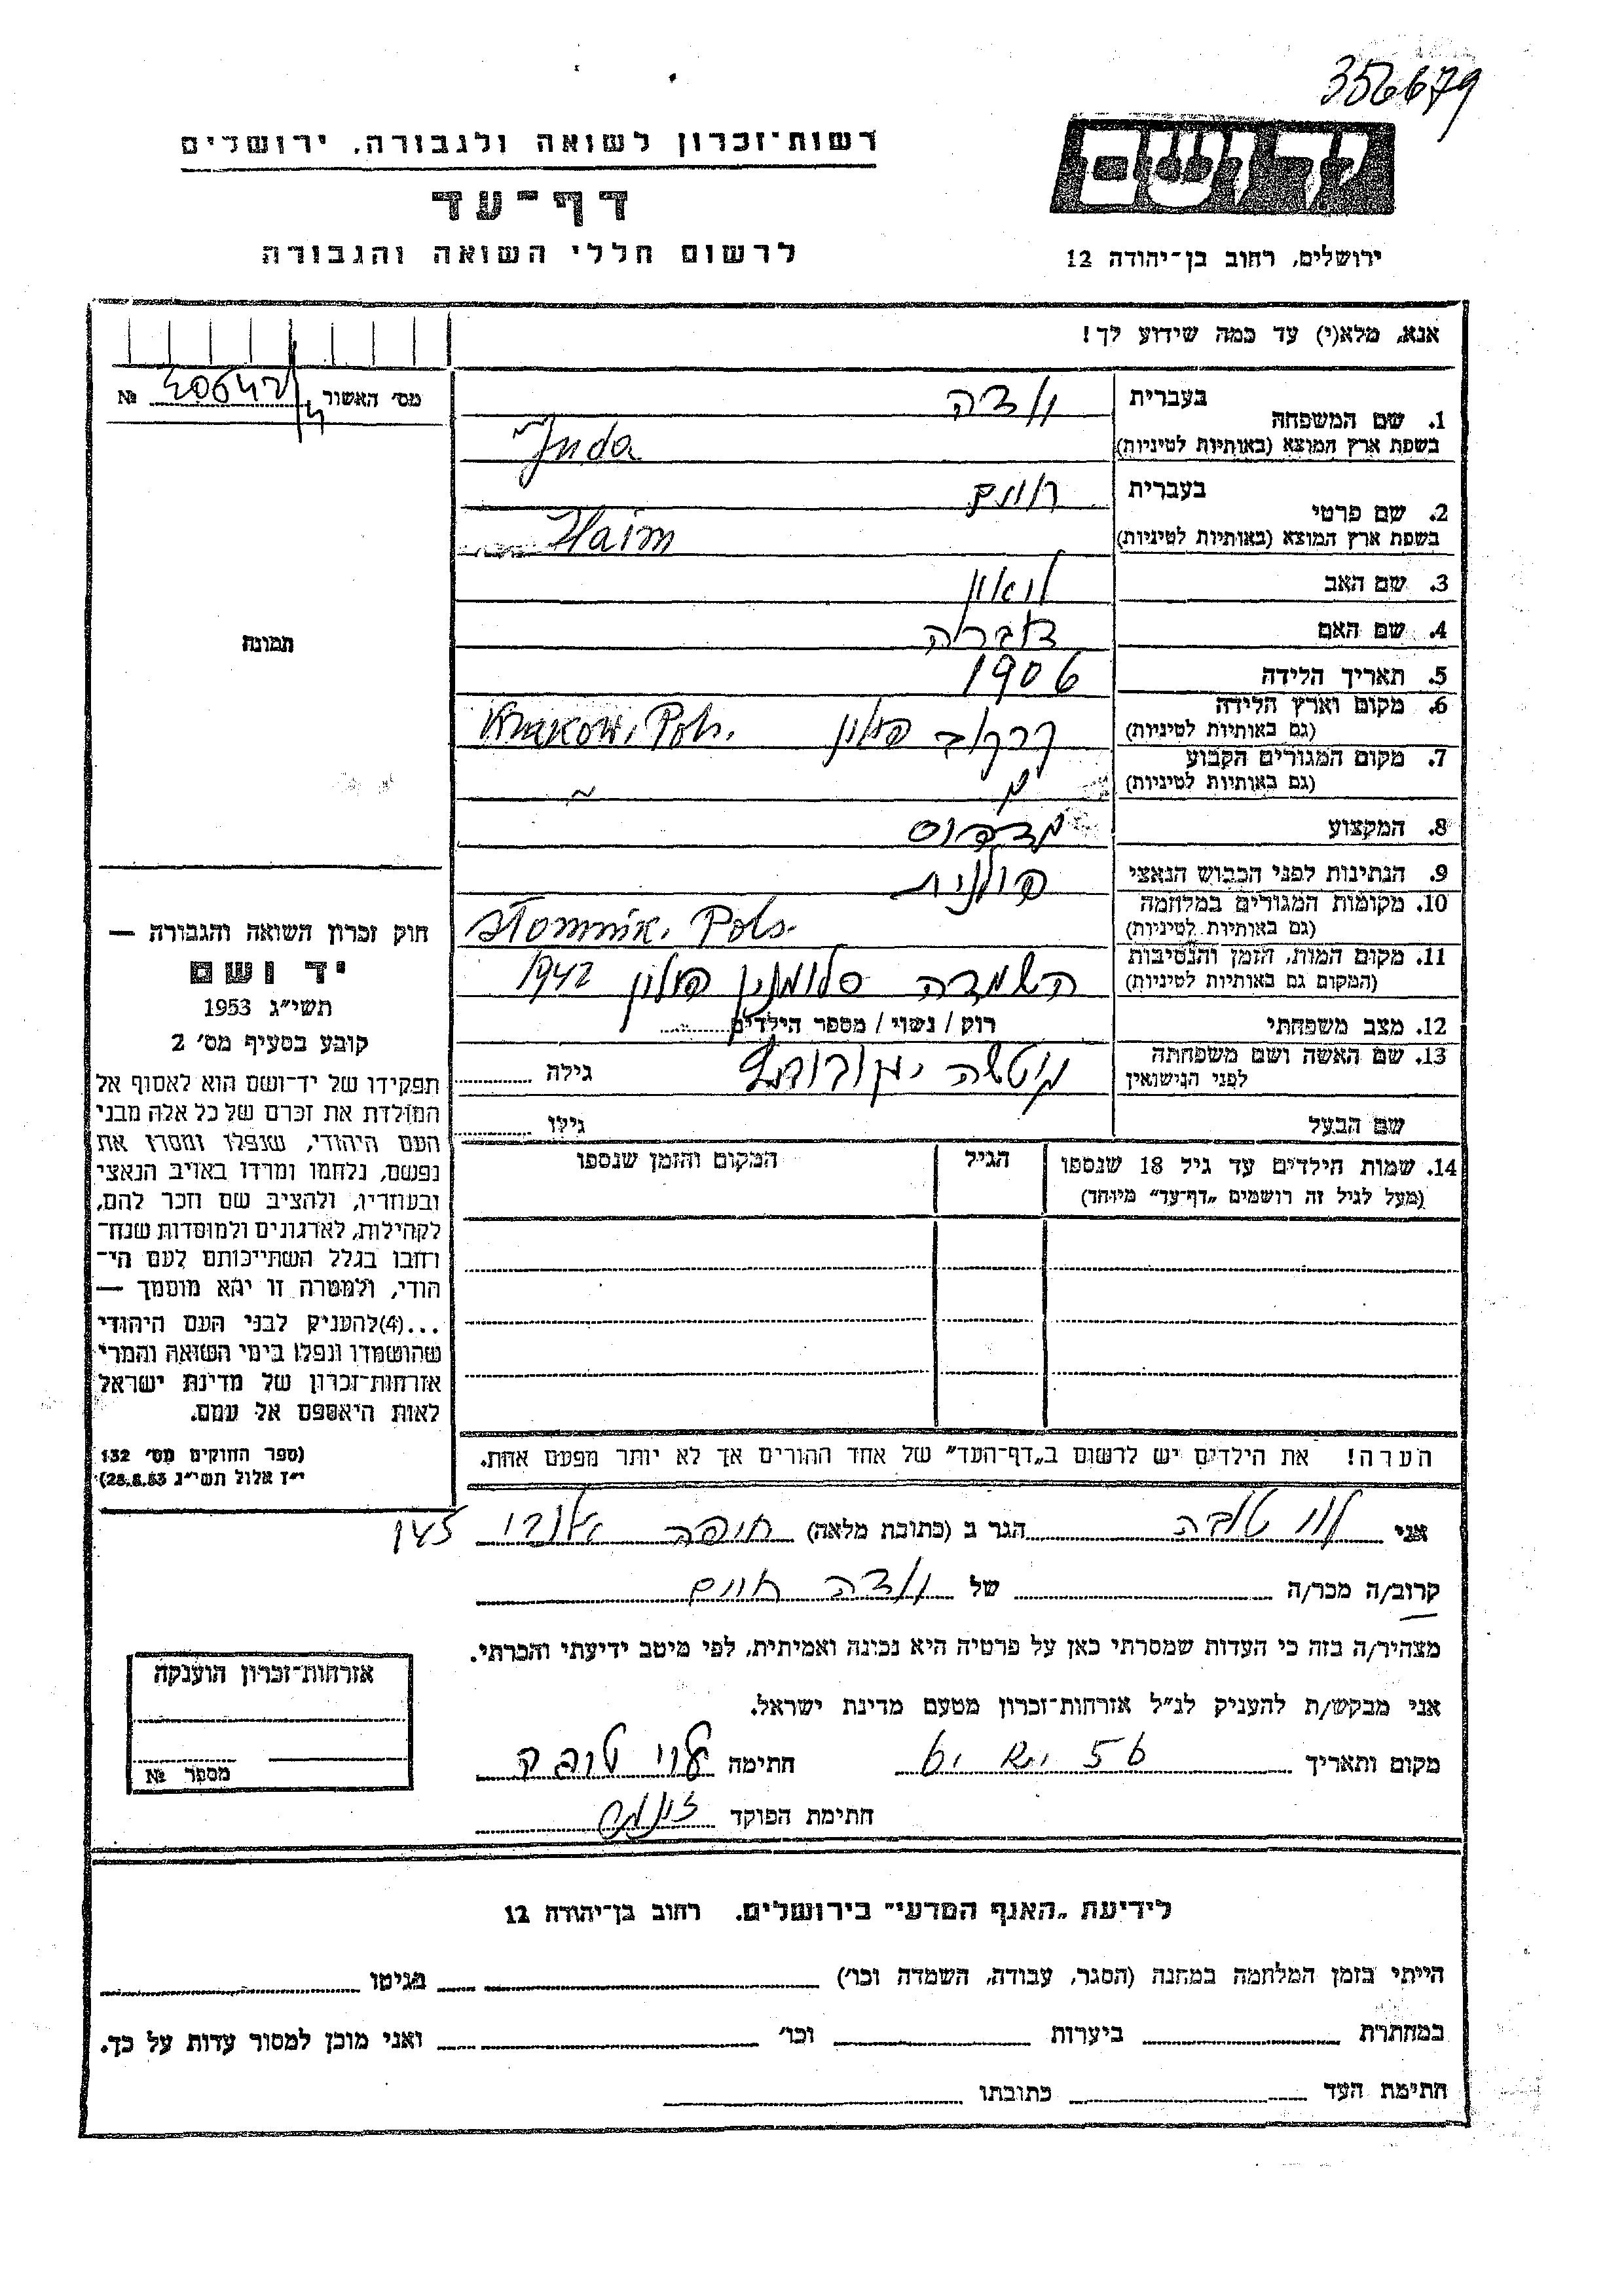 356679
רשות־זכרון לשואה ולגבורה, ירושלים
יד ושם
דף־עד
לרשום חללי השואה והגבורה
ירושלים, רחוב בן־יהודה 12
אנא, מלא(י) עד כמה שידוע לך!
מס׳ האשור №
1. שם המשפחה בעברית יודה
בשפת ארץ המוצא (באותיות לטיניות) Juda
2. שם פרטי בעברית חיים
בשפת ארץ המוצא (באותיות לטיניות) Haim
3. שם האב ליאון
4. שם האם דבורה
5. תאריך הלידה 1906
6. מקום וארץ הלידה (גם באותיות לטיניות) קרקוב פולין Krakow, Pols.
7. מקום המגורים הקבוע (גם באותיות לטיניות)
8. המקצוע מדפיס
9. הנתינות לפני הכבוש הנאצי פולנית
10. מקומות המגורים במלחמה (גם באותיות לטיניות) Słomnik, Pols.
11. מקום המות, הזמן והנסיבות (המקום גם באותיות לטיניות) השמדה סלומניק פולין 1942
12. מצב משפחתי רוק / נשוי / מספר הילדים
13. שם האשה ושם משפחתה לפני הנישואין גילה
שם הבעל גילו
14. שמות הילדים עד גיל 18 שנספו (מעל לגיל זה רושמים „דף־עד״ מיוחד) הגיל המקום והזמן שנספו
הערה! את הילדים יש לרשום ב„דף־העד״ של אחד ההורים אך לא יותר מפעם אחת.
תמונה
חוק זכרון השואה והגבורה —
יד ושם
תשי״ג 1953
קובע בסעיף מס׳ 2
תפקידו של יד־ושם הוא לאסוף אל
המולדת את זכרם של כל אלה מבני
העם היהודי, שנפלו ומסרו את
נפשם, נלחמו ומרדו באויב הנאצי
ובעוזריו, ולהציב שם וזכר להם,
לקהילות, לארגונים ולמוסדות שנח־
רחבו בגלל השתייכותם לעם הי־
הודי, ולמטרה זו יהא מוסמך —
...(4)להעניק לבני העם היהודי
שהושמדו ונפלו בימי השואה והמרי
אזרחות־זכרון של מדינת ישראל
לאות היאספם אל עמם.
(ספר החוקים מס׳ 132
י״ז אלול תשי״ג 28.8.53)
אני לוי טובה הגר ב (כתובת מלאה) חיפה
קרוב/ה מכר/ה של יודה חיים
מצהיר/ה בזה כי העדות שמסרתי כאן על פרטיה היא נכונה ואמיתית, לפי מיטב ידיעתי והכרתי.
אני מבקש/ת להעניק לנ״ל אזרחות־זכרון מטעם מדינת ישראל.
מקום ותאריך חתימה לוי טובה
חתימת הפוקד
אזרחות־זכרון הוענקה
מספר №
לידיעת „האגף המדעי״ בירושלים. רחוב בן־יהודה 12
הייתי בזמן המלחמה במחנה (הסגר, עבודה, השמדה וכו׳) בגיטו
במחתרת ביערות וכו׳ ואני מוכן למסור עדות על כך.
חתימת העד כתובתו